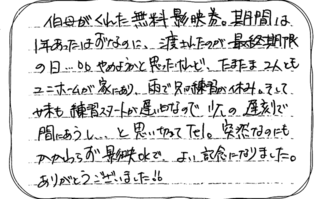 伯母がくれた無料影映券。期間は
1年あったはずなのに、渡されたのが最終期限
の日…。やめようと思ったけれど、たまたま2人とも
ユニホームが家にあり、雨で兄は練習が休み。そして
弟も練習スタートが遅い日なので少しの遅刻で
間にあうし…と思いきってTel。突然なのにも
かかわらず影映okで、よい記念になりました。
ありがとうございました!!